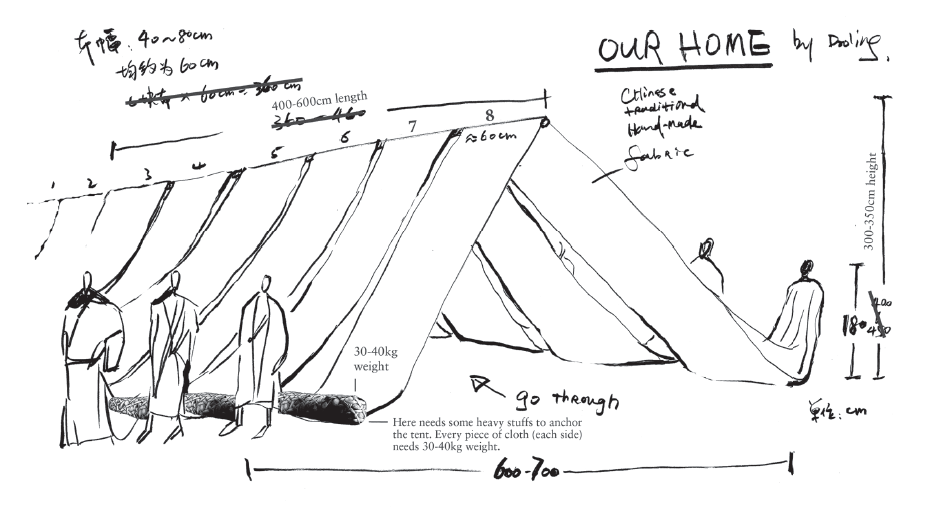 布幅: 40~80cm
均约为 60cm
× 60cm = 360cm
OUR HOME by Daoling.
400-600cm length
360-460
Chinese
tranditional
Hand-made
fabric
1 2 3 4 5 6 7 8
≈60cm
300-350cm height
400
450
180
30-40kg
weight
go through
单位: cm
Here needs some heavy stuffs to anchor
the tent. Every piece of cloth (each side)
needs 30-40kg weight.
600-700